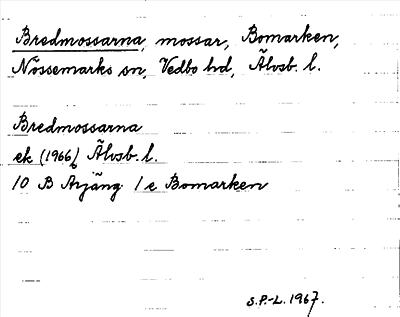 Bredmossarna, mossar, Bomarken,
Nössemarks sn, Vedbo hd, Älvsb. l.
Bredmossarna
ek (1966) Älvsb. l.
10 B Årjäng 1 e Bomarken
S.P.-L. 1967.